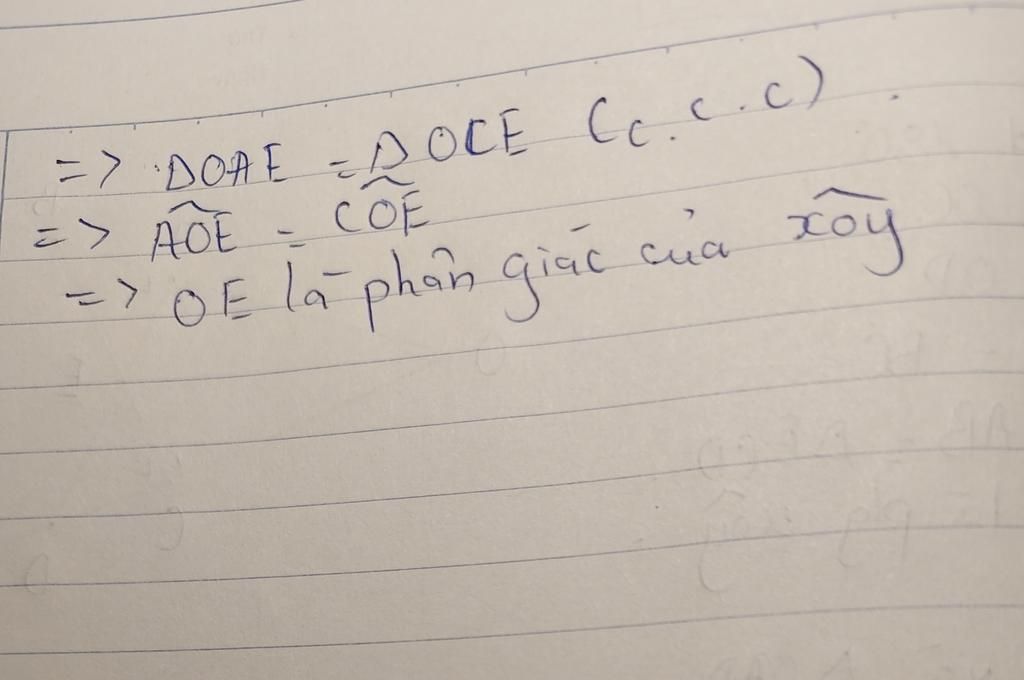 => ΔOAE = ΔOCE (c.c.c).
=> \widehat{AOE} = \widehat{COE}
=> OE là phân giác của \widehat{xOy}